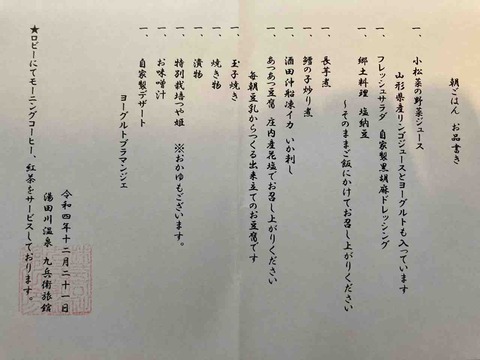 朝ごはん お品書き
一、 小松菜の野菜ジュース
山形県産リンゴジュースとヨーグルトも入っています
一、 フレッシュサラダ 自家製黒胡麻ドレッシング
一、 郷土料理 塩納豆
～そのままご飯にかけてお召し上がりください
一、 長芋煮
一、 鱈の子炒り煮
一、 酒田汁船凍イカ いか刺し
一、 あつあつ豆腐 庄内産花塩でお召し上がりください
毎朝豆乳からつくる出来立てのお豆腐です
一、 玉子焼き
一、 焼き物
一、 漬物
一、 特別栽培つや姫 ※おかゆもございます。
一、 お味噌汁
一、 自家製デザート
ヨーグルトブラマンジェ
令和四年十二月二十一日
湯田川温泉 九兵衛旅館
★ロビーにてモーニングコーヒー、紅茶をサービスしております。